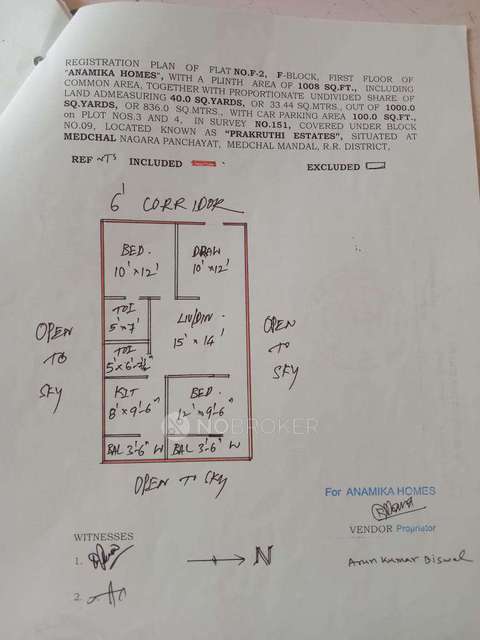 REGISTRATION PLAN OF FLAT NO.F-2, F-BLOCK, FIRST FLOOR OF
"ANAMIKA HOMES", WITH A PLINTH AREA OF 1008 SQ.FT., INCLUDING
COMMON AREA, TOGETHER WITH PROPORTIONATE UNDIVIDED SHARE OF
LAND ADMEASURING 40.0 SQ.YARDS, OR 33.44 SQ.MTRS., OUT OF 1000.0
SQ.YARDS, OR 836.0 SQ.MTRS., WITH CAR PARKING AREA 100.0 SQ.FT.,
on PLOT NOS.3 AND 4, IN SURVEY NO.151, COVERED UNDER BLOCK
NO.09, LOCATED KNOWN AS "PRAKRUTHI ESTATES", SITUATED AT
MEDCHAL NAGARA PANCHAYAT, MEDCHAL MANDAL, R.R. DISTRICT.
REF NTS INCLUDED EXCLUDED
6' CORRIDOR
BED. DRAW
10' x 12' 10' x 12'
TOI
5' x 7'
LIV/DIN.
15' x 14'
TOI
OPEN
TO
SKY
OPEN
TO
SKY
KIT BED.
8' x 9'-6" 12' x 9'-6"
BAL 3'-6" W BAL 3'-6" W
OPEN TO SKY
NOBROKER
For ANAMIKA HOMES
VENDOR Proprietor
Arun Kumar Biswal
WITNESSES
1.
N
2.